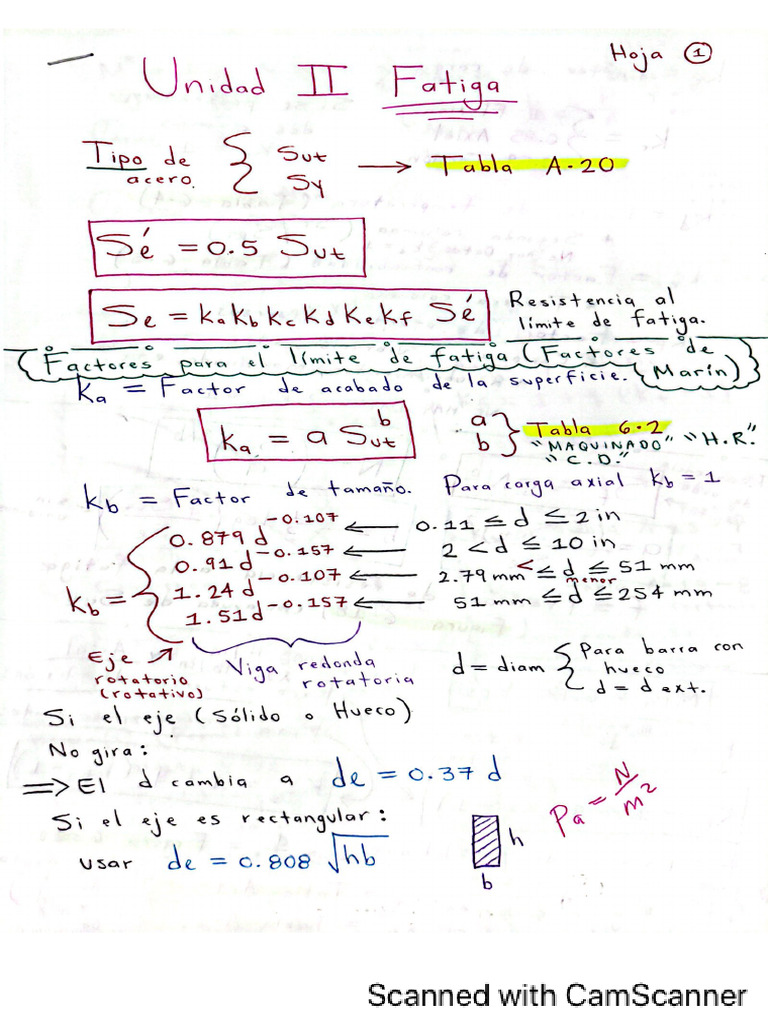 Hoja ①
Unidad II Fatiga
Tipo de acero. { Sut Sy → Tabla A-20
Sé = 0.5 Sut
Se = ka kb kc kd ke kf Sé Resistencia al límite de fatiga.
Factores para el límite de fatiga (Factores de Marín)
ka = Factor de acabado de la superficie.
ka = a Sut^b a b } Tabla 6.2 "MAQUINADO" "H.R." "C.D."
kb = Factor de tamaño. Para carga axial kb = 1
kb = {
0.879 d^-0.107 ← 0.11 ≤ d ≤ 2 in
0.91 d^-0.157 ← 2 < d ≤ 10 in
1.24 d^-0.107 ← 2.79 mm ≤ d ≤ 51 mm
< menor
1.51 d^-0.157 ← 51 mm ≤ d ≤ 254 mm
Eje rotatorio (rotativo)
Viga redonda rotatoria
d = diam { Para barra con hueco d = d ext.
Si el eje (Sólido o Hueco)
No gira:
⇒ El d cambia a de = 0.37 d
Si el eje es rectangular:
usar de = 0.808 √hb
h
b
Pa = N/m²
Scanned with CamScanner